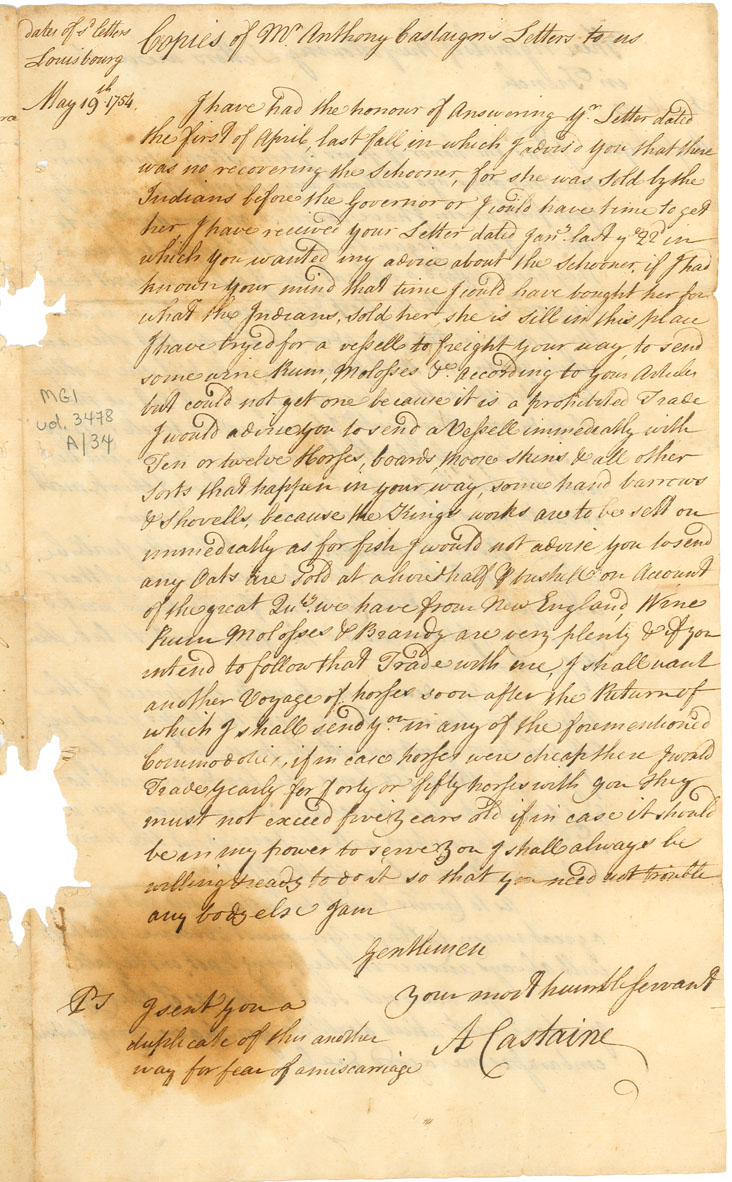 dates of sd letters
Louisbourg
May 19th 1754
Copies of Mr Anthony Castaigns Letters to us
I have had the honour of Answering yr Letter dated
the first of April, last fall in which I advis'd you that there
was no recovering the Schooner, for she was sold by the
Indians before the Governor or I could have time to get
her, I have received your Letter dated Jany last ye 22d in
which you wanted my advice about the Schooner, if I had
known your mind that time I would have bought her for
what the Indians, sold her, she is sill in this place
I have tryed for a vessell to freight your way, to send
some wine Rum, Molosses &c According to your Articles
but could not get one because it is a prohibited Trade
I would advise you to send a Vessell immediatly with
Ten or twelve Horses, boards, Moose skins & all other
sorts that happen in your way, some hand barrows
& Shovells, because the Kings works are to be sett on
immediatly as for fish I would not advise you to send
any Oats are Sold at a livre & half p bushell on Account
of the great Quty we have from New England Wine
Rum Molosses & Brandy are very plenty & if you
intend to follow that Trade with me, I shall want
another Voyage of horses soon after the Return of
which I shall send you in any of the forementioned
Commodoties, if in case horses were cheap there I would
Trade yearly for forty or fifty horses with you they
must not exceed five years old if in case it should
be in my power to serve you I shall always be
willing & ready to do it so that you need not trouble
any body else I am
Gentlemen
your most humble servant
A Castaine
Ps I sent you a
duplicate of this another
way for fear of a miscarriage
MG1
vol. 3478
A/34